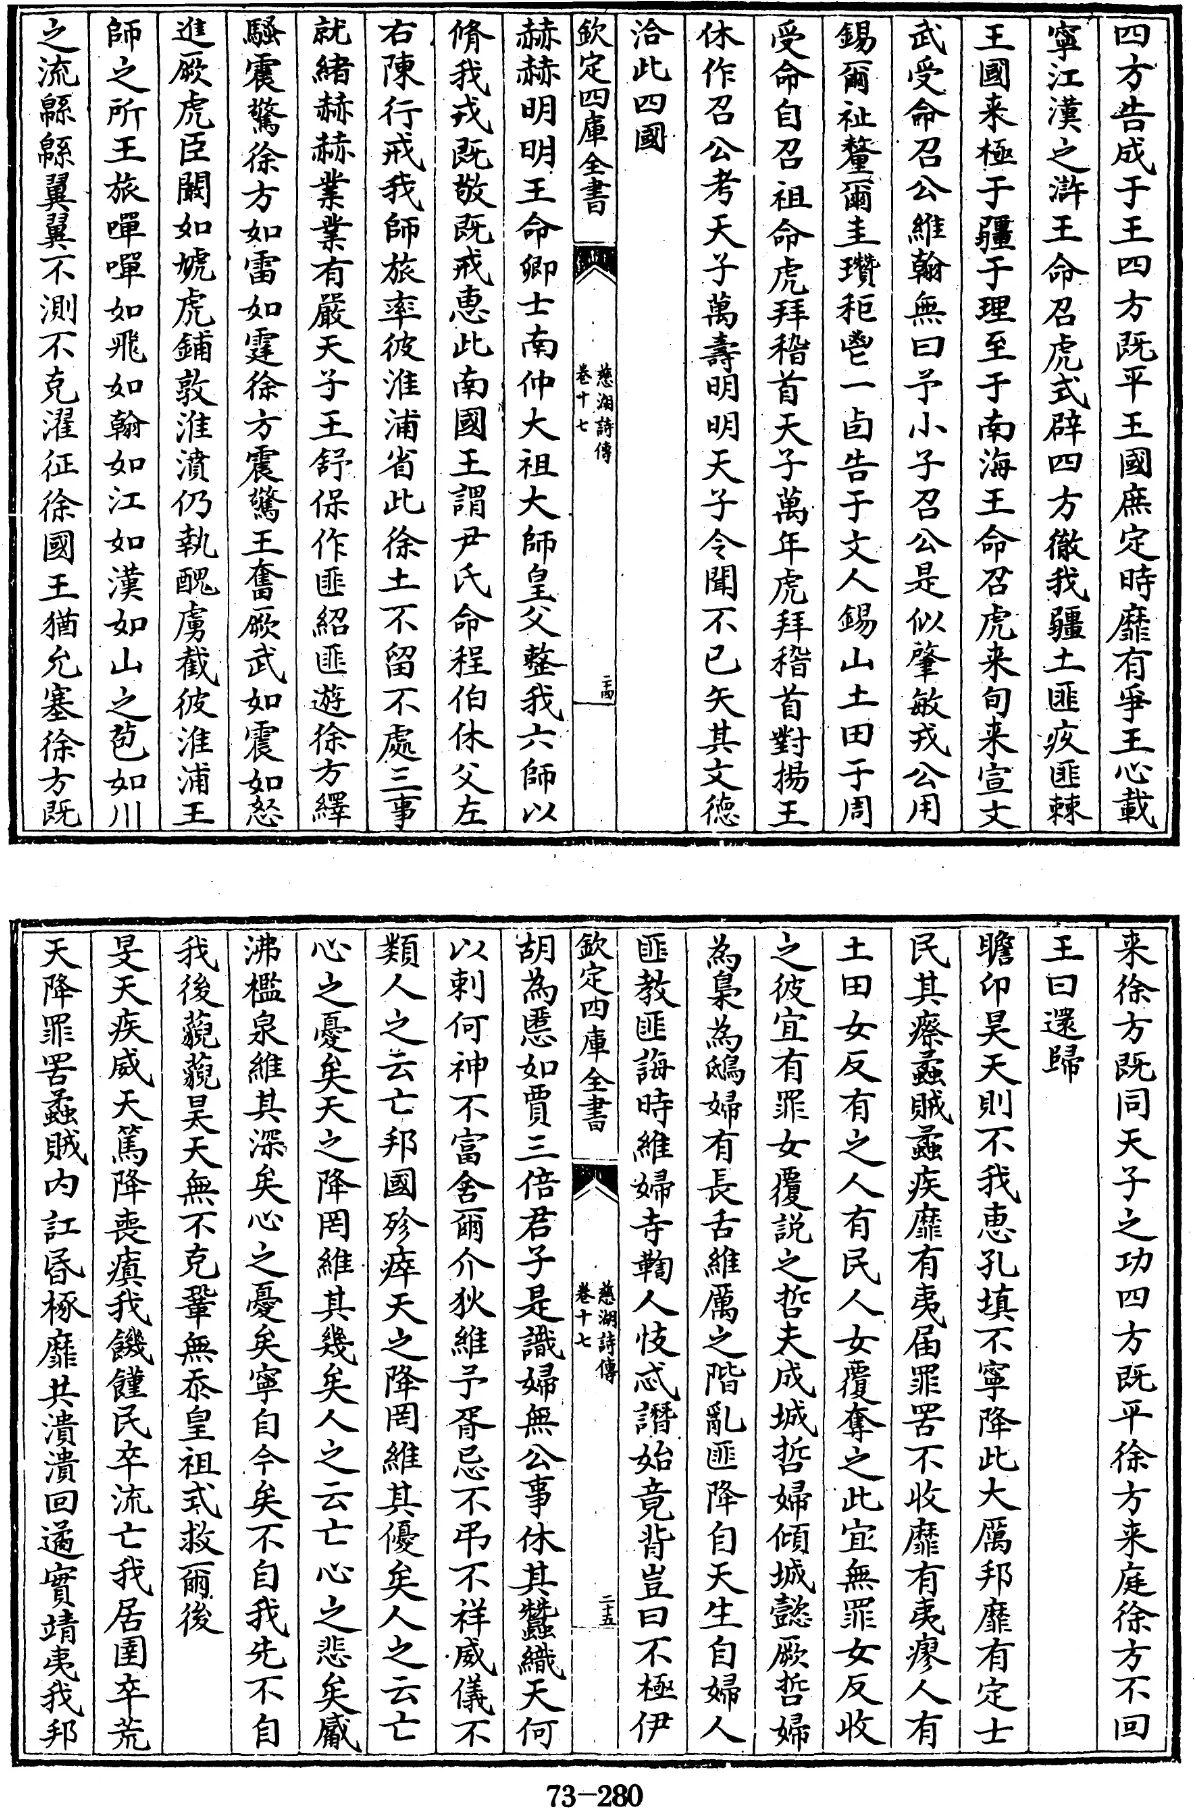 四方告成于王四方既平王國庶定時靡有爭王心載
寧江漢之滸王命召虎式辟四方徹我疆土匪疚匪棘
王國来極于疆于理至于南海王命召虎来旬来宣文
武受命召公維翰無曰予小子召公是似肇敏戎公用
錫爾祉釐爾圭瓚秬鬯一卣告于文人錫山土田于周
受命自召祖命虎拜稽首天子萬年虎拜稽首對揚王
休作召公考天子萬壽明明天子令聞不已矢其文德
洽此四國
欽定四庫全書
慈湖詩傳
卷十七
二十四
赫赫明明王命卿士南仲大祖大師皇父整我六師以
脩我戎既敬既戒惠此南國王謂尹氏命程伯休父左
右陳行戒我師旅率彼淮浦省此徐土不留不處三事
就緒赫赫業業有嚴天子王舒保作匪紹匪遊徐方繹
騷震驚徐方如雷如霆徐方震驚王奮厥武如震如怒
進厥虎臣闞如虓虎鋪敦淮濆仍執醜虜截彼淮浦王
師之所王旅嘽嘽如飛如翰如江如漢如山之苞如川
之流緜緜翼翼不測不克濯征徐國王猶允塞徐方既
来徐方既同天子之功四方既平徐方来庭徐方不回
王曰還歸
瞻卬昊天則不我惠孔填不寧降此大厲邦靡有定士
民其瘵蟊賊蟊疾靡有夷屆罪罟不收靡有夷瘳人有
土田女反有之人有民人女覆奪之此宜無罪女反收
之彼宜有罪女覆說之哲夫成城哲婦傾城懿厥哲婦
為梟為鴟婦有長舌維厲之階亂匪降自天生自婦人
匪教匪誨時維婦寺鞫人忮忒譖始竟背豈曰不極伊
欽定四庫全書
慈湖詩傳
卷十七
二十五
胡為慝如賈三倍君子是識婦無公事休其蠶織天何
以刺何神不富舍爾介狄維予胥忌不弔不祥威儀不
類人之云亡邦國殄瘁天之降罔維其優矣人之云亡
心之憂矣天之降罔維其幾矣人之云亡心之悲矣觱
沸檻泉維其深矣心之憂矣寧自今矣不自我先不自
我後藐藐昊天無不克鞏無忝皇祖式救爾後
旻天疾威天篤降喪瘨我饑饉民卒流亡我居圉卒荒
天降罪罟蟊賊内訌昬椓靡共潰潰回遹實靖夷我邦
73-280